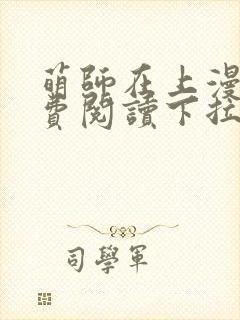 萌師在上漫
費閱讀下拉
司學軍